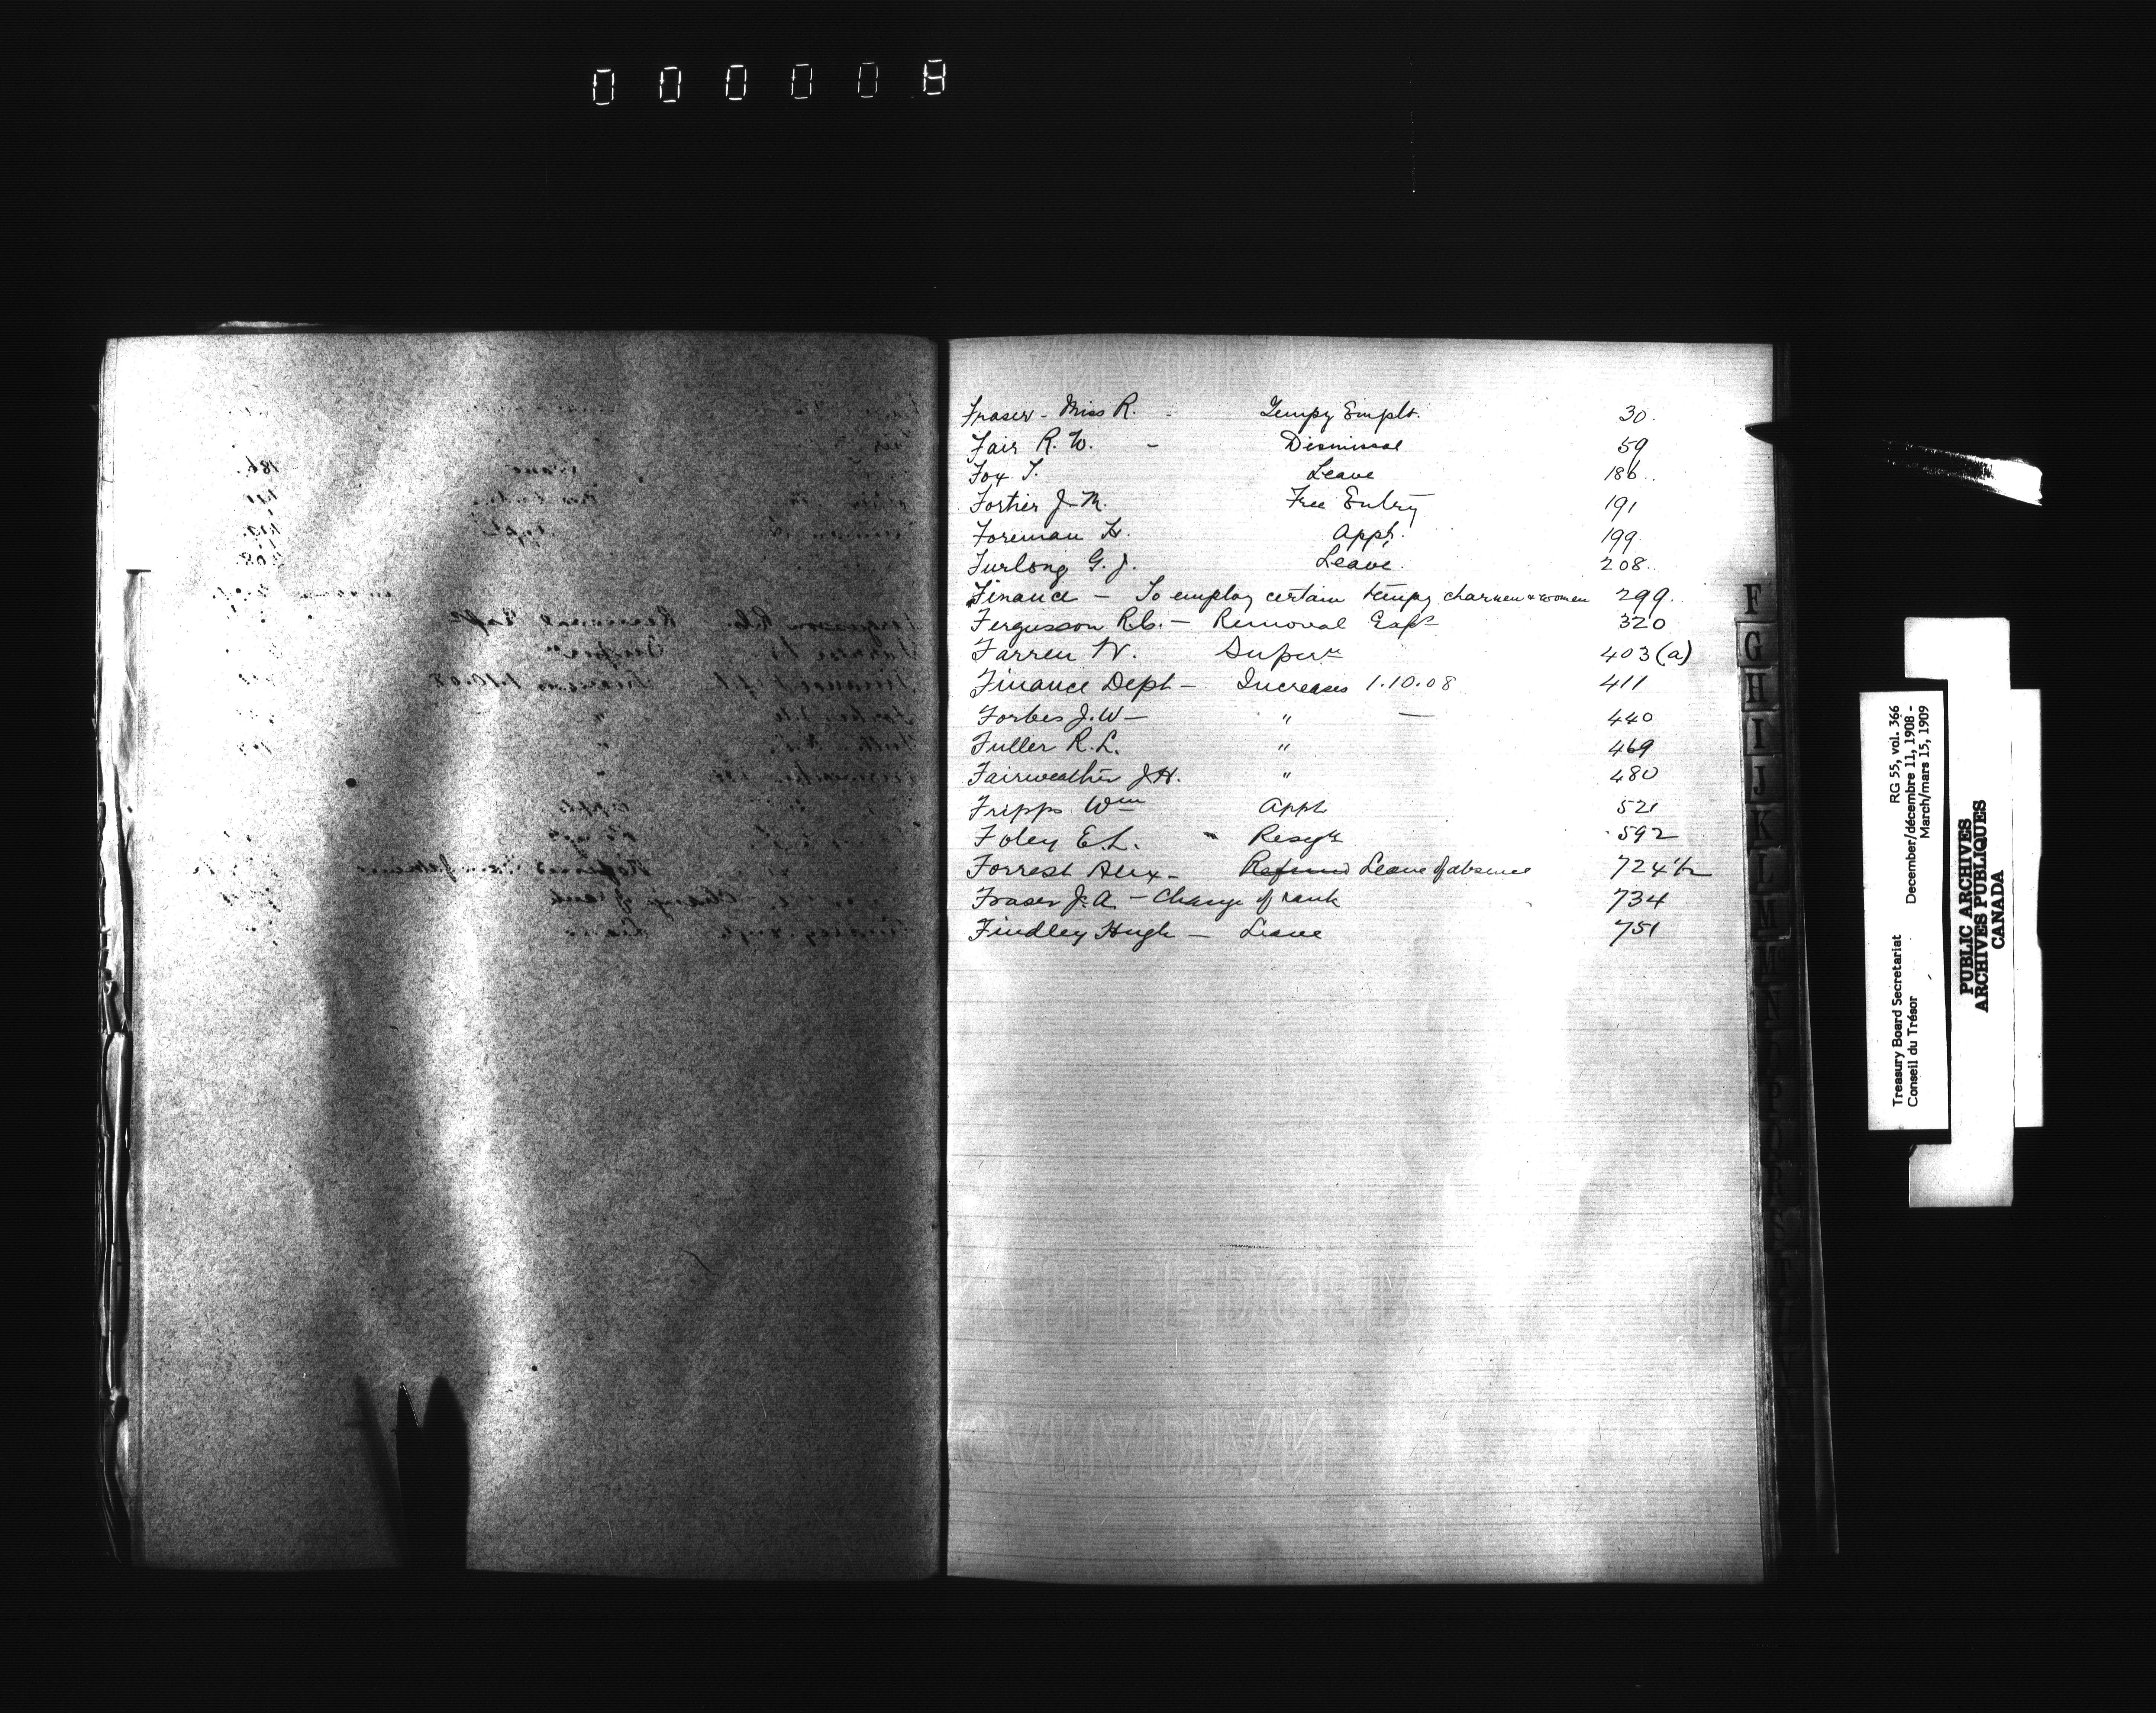 000008
Fraser - Miss R. - Tempy Emplt. 30.
Fair R. W. - Dismissal 59
Fox T. Leave 186..
Fortier J. M. Free Entry 191
Foreman H. Appt. 199.
Furlong G. J. Leave. 208..
Finance - To employ certain tempy charmen & women 299..
Fergusson R.C. - Removal Exps 320
Farren W. Supern 403(a)
Finance Dept - Increases 1.10.08 411
Forbes J. W - " - 440
Fuller R. L. " 469
Fairweather J. H. " 480
Fripps Wm Appt 521
Foley E. L. " Resgn 592
Forrest Alex - Refund Leave of absence 724 1/2
Fraser J. A. - Change of rank 734
Findley Hugh - Leave 751
F
G
H
I
J
K
L
M
N
O
P
Q
R
S
T
Treasury Board Secretariat RG 55, vol. 366
Conseil du Trésor December/décembre 11, 1908 -
March/mars 15, 1909
PUBLIC ARCHIVES
ARCHIVES PUBLIQUES
CANADA